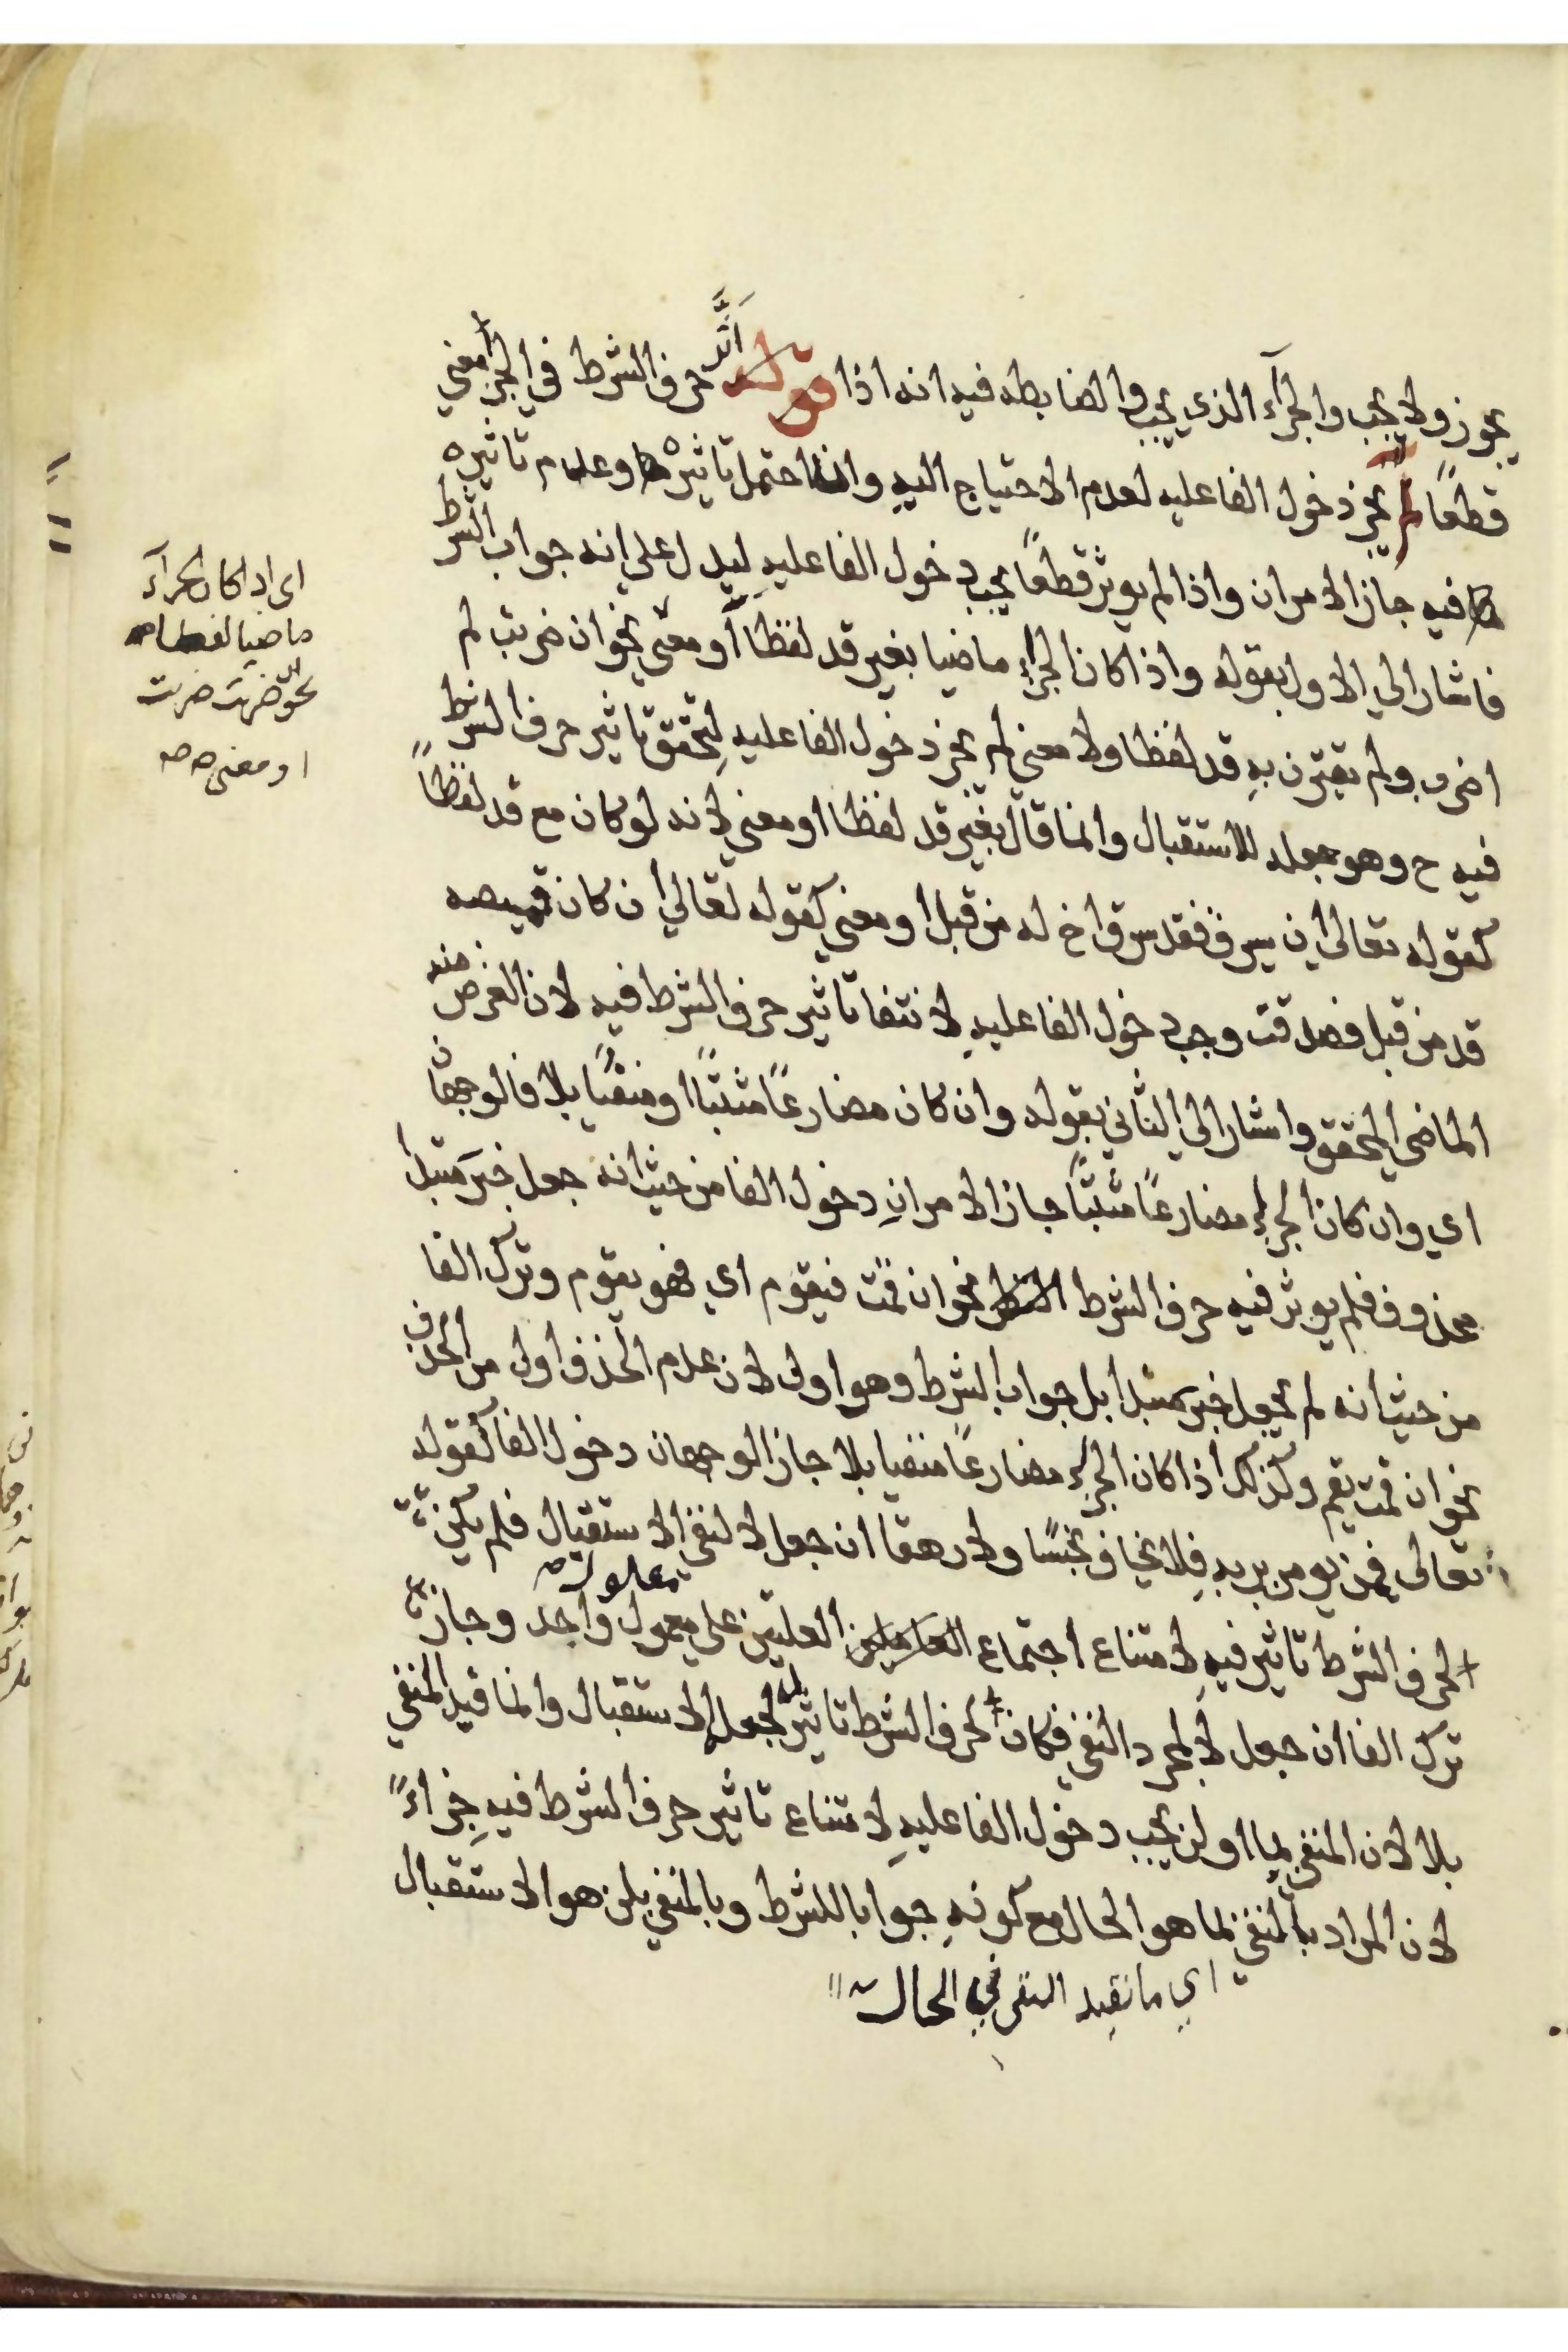 يجوز ولا يجب والجزآء الذي يجب والضابطه فيه انه اذا قوله اثَّر حرف الشرط في الجزا معني
قطعًا لم يجز دخول الفا عليه لعدم الاحتياج اليه وان احتمل تاثيره وعدم تاثيره
فيه جاز الامران واذا لم يوثر قطعًا يجب دخول الفا عليهِ ليدل علي انه جواب الشرط
فاشار الي الاول بقوله واذا كان الجزاء ماضيا بغير قد لفظا أو معنى نحو ان ضربت لم
اضرب ولم يقترن بهِ قد لفظا ولا معني لم يجز دخول الفا عليهِ لِتحقق تاثير حرف الشرط
فيه ح وهو جعله للاستقبال وانما قال بغير قد لفظا او معني لانه لو كان مع قد لفظاً
كقوله تعالى ان يسرق فقد سرق اخ له من قبل او معني كقوله تعالي ان كان قميصه
قد من قبل فصدقت وجب دخول الفا عليهِ لانتفا تاثير حرف الشرط فيه لان الغرض منه
الماضي المحقق واشار الي الثاني بقوله وان كان مضارعًا مثبتًا او منفيًا بلا فالوجهان
اي وان كان الجزاء مضارعًا مثبتًا جاز الامرانِ دخول الفا من حيث انه جعل خبر مبتدا
محذوف فلم يوثر فيه حرف الشرط نحو ان قمت فيقوم اي فهو يقوم وترك الفا
من حيث انه لم يجعل خبر مبتدا بل جواب الشرط وهو اولى لان عدم الحذف اولى من الحذف
نحو ان قمت يقم وكذلك اذا كان الجزاء مضارعًا منفيا بلا جاز الوجهان دخول الفا كقوله
تعالى فمن يومن بربهِ فلا يخاف بخسًا ولا رهقا ان جعل لا لنفي الاستقبال فلم يكن
لحرف الشرط تاثير فيهِ لامتناع اجتماع العلتين على معمول واحد وجاز
معلول صح
ترك الفا ان جعل لا لمجرد النفي فكان لحرف الشرط تاثير لجعله الاستقبال وانما قيد المنفي
بلا لان المنفي بما او لن يجب دخول الفا عليهِ لامتناع تاثير حرف الشرط فيهِ جزاءً
لان المراد بالمنفي بما هو الحال مع كونهِ جوابا للشرط وبالمنفي بلن هو الاستقبال
اي ما تفيد النفي في الحال
اى اذا كان الجزآء
ماضيا لفظا
نحو ان ضربت ضربت
او معنى صح صح